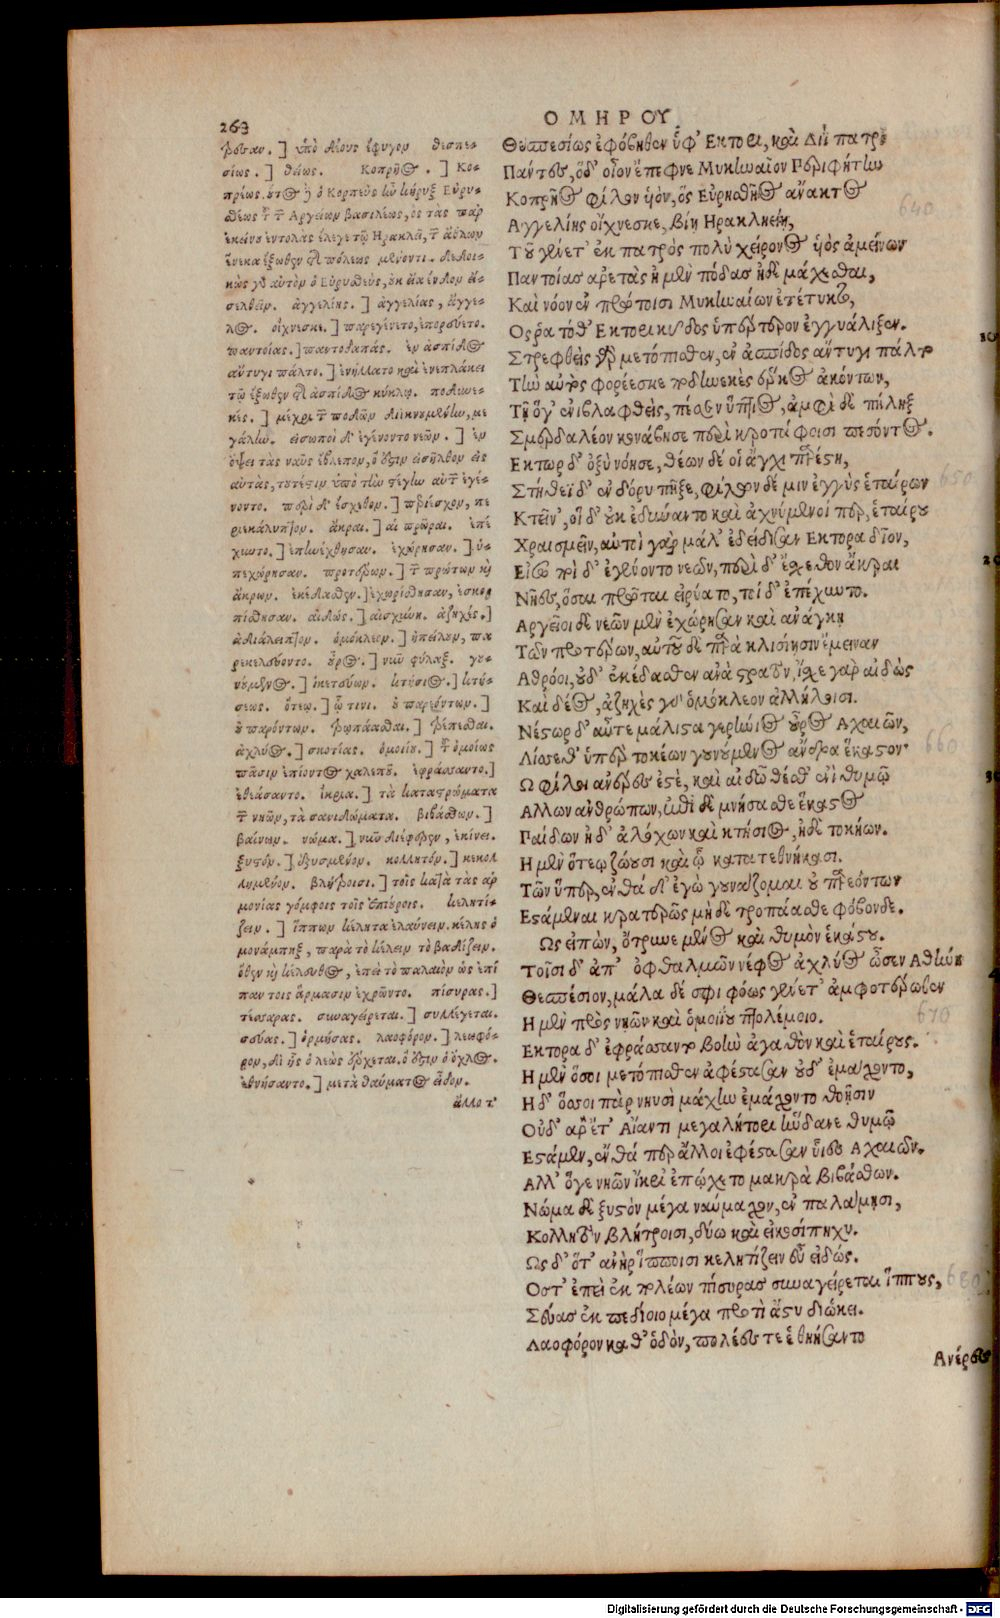 263
ΟΜΗΡΟΥ
ὑπὸ Δίους ἔφυγον θεσπε-
σίως.] θείως. Κοπρῆος.] Κο-
πρέως. οὗτος ἦν ὁ Κοπρεὺς κῆρυξ Εὐρυ-
σθέως τοῦ τῶν Ἀργείων βασιλέως, ὃς τὰς παρ'
ἐκείνου ἐντολὰς ἔλεγε τῷ Ἡρακλεῖ, τῶν ἄθλων
ἕνεκα ἔξωθεν τῆς πόλεως μένοντι. δεδοι-
κὼς γὰρ αὐτὸν ὁ Εὐρυσθεὺς, οὐκ εἴα ἔνδον εἰ-
σελθεῖν. ἀγγελίης.] ἀγγελίας, ἄγγε-
λος. οἴχνεσκε.] παρεγένετο, ἐπορεύετο.
παντοίας.] παντοδαπάς. ἐν ἀσπίδος
ἄντυγι πάλτο.] ἐνήλλατο καὶ ἐνεπλάκει
τῷ ἔξωθεν τῆς ἀσπίδος κύκλῳ. ποδηνε-
κές.] μέχρι τῶν ποδῶν διικνουμένην, με
γάλην. εἰσωποὶ δ' ἐγένοντο νεῶν.] ἐν
ὄψει τὰς ναῦς ἔβλεπον, ὅ ἐστιν εἰσῆλθον εἰς
αὐτὰς, τουτέστιν ὑπὸ τὴν στέγην αὐτῶν ἐγέ-
νοντο. περὶ δ' ἔσχεθον.] περιέσχον, πε
ριεκάλυπτον. ἄκραι.] αἱ πρῶραι. ἐπέ
χυντο.] ἐπηνέχθησαν. ἐχώρησαν.] ὑ-
πεχώρησαν. προτέρων.] τῶν πρώτων καὶ
ἄκρων. ἐκέδασθεν.] ἐχωρίσθησαν, ἐσκορ
πίσθησαν. αἰδώς.] αἰσχύνη. ἀζηχές.]
ἀδιάλειπτον. ὁμόκλεον.] ἠπείλουν, πα
ρεκελεύοντο. οὖρος.] νῦν φύλαξ. γου-
νούμενος.] ἱκετεύων. κτήσιος.] κτή-
σεως. ὅτεῳ.] ᾧ τινι. οὐ παρεόντων.]
οὐ παρόντων. τρωπάασθαι.] τρέπεσθαι.
ἀχλύος.] σκοτίας. ὁμοιίου.] τοῦ ὁμοίως
πᾶσιν ἐπίοντος χαλεποῦ. ἐφράσαντο.]
ἐθεάσαντο. ἴκρια.] τὰ καταστρώματα
τῶν νηῶν, τὰ σανιδώματα. βιβάσθων.]
βαίνων. νώμα.] νῦν διέφερεν, ἐκίνει.
ξυστόν.] ἐξυσμένον. κολλητόν.] κεκολ
λημένον. βλήτροισι.] τοῖς κατὰ τὰς ἁρ
μονίας γόμφοις τοῖς ἐπιούροις. κελητί-
ζειν.] ἵππων κέλητα ἐλαύνειν. κέλης ὁ
μονάμπηξ, παρὰ τὸ κέλειν τὸ βαδίζειν.
ὅθεν καὶ κέλευθος, ἐπεὶ τὸ παλαιὸν ὡς ἐπὶ
παντοις ἅρμασιν ἐχρῶντο. πίσυρας.]
τέσσαρας. συναγείρεται.] συλλέγεται.
σεύας.] ὁρμήσας. λαοφόρον.] λεωφό-
ρον, δι' ἧς ὁ λεὼς ἔρχεται. ὅ ἐστιν ὁ ὄχλος.
ἐθηήσαντο.] μετὰ θαύματος εἶδον.
ἄλλοτ'
Θεσπεσίως ἐφόβηθεν ὑφ' Ἕκτορι, καὶ Διὶ πατρὶ
Πάντες, ὁ δ' οἶον ἔπεφνε Μυκηναῖον Περιφήτην
Κοπρῆος φίλον ὑὸν, ὃς Εὐρυσθῆος ἄνακτος
Ἀγγελίης οἴχνεσκε, βίῃ Ἡρακληείῃ,
Τοῦ γένετ' ἐκ πατρὸς πολὺ χείρονος ὑὸς ἀμείνων
Παντοίας ἀρετὰς ἠμὲν πόδας ἠδὲ μάχεσθαι,
Καὶ νόον ἐν πρώτοισι Μυκηναίων ἐτέτυκτο,
Ὅς ῥα τόθ' Ἕκτορι κῦδος ὑπέρτερον ἐγγυάλιξεν.
Στρεφθεὶς γὰρ μετόπισθεν, ἐν ἀσπίδος ἄντυγι πάλτο
Τὴν αὐτὸς φορέεσκε ποδηνεκὲς ἕρκος ἀκόντων,
Τῇ ὅγ' ἐνιβλαφθεὶς, πέσεν ὕπτιος, ἀμφὶ δὲ πήληξ
Σμερδαλέον κονάβησε περὶ κροτάφοισι πεσόντος.
Ἕκτωρ δ' ὀξὺ νόησε, θέων δέ οἱ ἄγχι παρέστη,
Στήθεϊ δ' ἐν δόρυ πῆξε, φίλων δέ μιν ἐγγὺς ἑταίρων
Κτεῖν', οἱ δ' οὐκ ἐδύναντο καὶ ἀχνύμενοί περ, ἑταίρου
Χραισμεῖν, αὐτοὶ γὰρ μάλ' ἐδείδισαν Ἕκτορα δῖον,
Εἰσωποὶ δ' ἐγένοντο νεῶν, περὶ δ' ἔσχεθον ἄκραι
Νῆες, ὅσαι πρῶται εἰρύατο, τοὶ δ' ἐπέχυντο.
Ἀργεῖοι δὲ νεῶν μὲν ἐχώρησαν καὶ ἀνάγκῃ
Τῶν προτέρων, αὐτοῦ δὲ παρὰ κλισίῃσιν ἔμειναν
Ἀθρόοι, οὐδ' ἐκέδασθεν ἀνὰ στρατὸν, ἴσχε γὰρ αἰδὼς
Καὶ δέος, ἀζηχὲς γὰρ ὁμόκλεον ἀλλήλοισι.
Νέστωρ δ' αὖτε μάλιστα γερήνιος οὖρος Ἀχαιῶν,
Λίσσεθ' ὑπὲρ τοκέων γουνούμενος ἄνδρα ἕκαστον·
Ὦ φίλοι ἀνέρες ἐστὲ, καὶ αἰδῶ θέσθ' ἐνὶ θυμῷ
Ἄλλων ἀνθρώπων, ἐπὶ δὲ μνήσασθε ἕκαστος
Παίδων ἠδ' ἀλόχων καὶ κτήσιος, ἠδὲ τοκήων.
Ἠμὲν ὅτεῳ ζώουσι καὶ ᾧ κατατεθνήκασι.
Τῶν ὕπερ, ἐνθάδ' ἐγὼ γουνάζομαι οὐ παρεόντων
Ἑστάμεναι κρατερῶς μηδὲ τροπάασθε φόβονδε.
Ὣς εἰπὼν, ὄτρυνε μένος καὶ θυμὸν ἑκάστου.
Τοῖσι δ' ἀπ' ὀφθαλμῶν νέφος ἀχλύος ὦσεν Ἀθήνη
Θεσπέσιον, μάλα δέ σφι φόως γένετ' ἀμφοτέρωθεν
Ἠμὲν πρὸς νηῶν καὶ ὁμοιίου πτολέμοιο.
Ἕκτορα δ' ἐφράσαντο βοὴν ἀγαθὸν καὶ ἑταίρους.
Ἠμὲν ὅσοι μετόπισθεν ἀφέστασαν οὐδ' ἐμάχοντο,
Ἠδ' ὅσσοι παρ νηυσὶ μάχην ἐμάχοντο θοῇσιν
Οὐδ' ἄρ' ἔτ' Αἴαντι μεγαλήτορι ἥνδανε θυμῷ
Ἑστάμεν, ἔνθά περ ἄλλοι ἐφέστασαν ὕιες Ἀχαιῶν.
Ἀλλ' ὅγε νηῶν ἴκρι' ἐπῴχετο μακρὰ βιβάσθων.
Νώμα δὲ ξυστὸν μέγα ναύμαχον, ἐν παλάμῃσι,
Κολλητὸν βλήτροισι, δύω καὶ εἰκοσίπηχυ.
Ὡς δ' ὅτ' ἀνὴρ ἵπποισι κελητίζειν εὖ εἰδώς.
Ὅστ' ἐπεὶ ἐκ πολέων πίσυρας συναγείρεται ἵππους,
Σεύας ἐκ πεδίοιο μέγα προτὶ ἄστυ διώκει.
Λαοφόρον καθ' ὁδὸν, πολέες τε ἑ θηήσαντο
Ἀνέρες
640
650
660
670
680
10
Digitalisierung gefördert durch die Deutsche Forschungsgemeinschaft - DFG